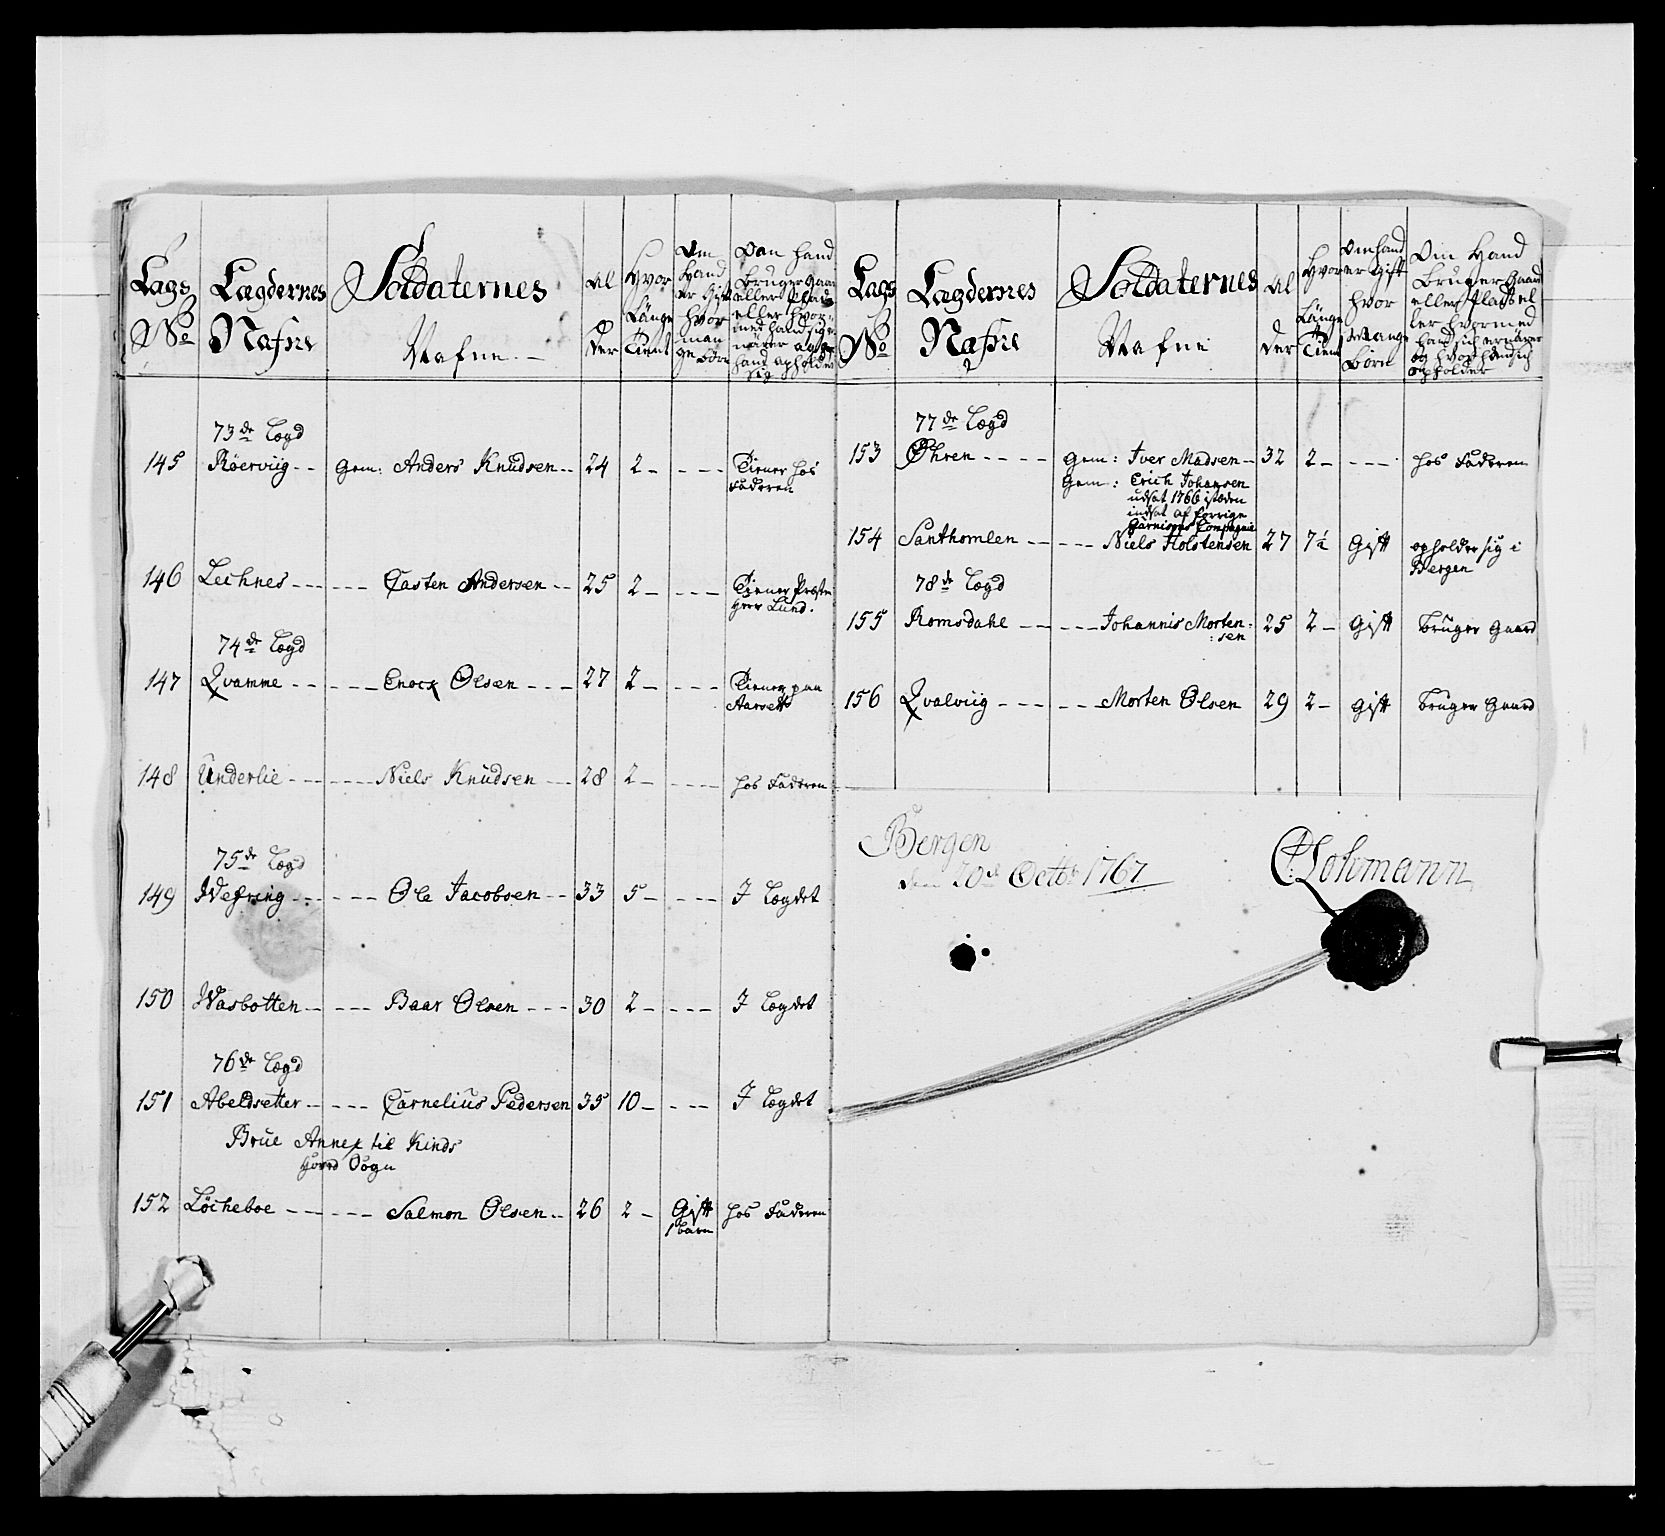 Lags No
Lægdernes Nafne
Soldaternes Nafne
Al der
Hvor Længe Tient
Om Hand er Gift hvor mange børn
Om Hand bruger Gaard eller Plads eller hvormed hand sig nærer og hvor hand opholder sig
73de Lægd
145 Røerviig - - Gem: Anders Knudsen - - 24 2 - - - - Tiener hos
Faderen
146 Lechnes - - - - - - Casten Andersen - - 25 2 - - - - Tiener Præsten
Herr Lund.
74de Lægd
147 Qvamme - - - - - - Enock Olsen - - - 27 2 - - - - Tiener paa
Aarseth
148 Underlie - - - - - - Niels Knudsen - - 28 2 - - - - hos Faderen
75de Lægd
149 Wefring - - - - - - Ole Jacobsen - - 33 5 - - - - I Lægdet
150 Wasbotten - - - - Baar Olsen - - - 30 2 - - - - I Lægdet
76de Lægd
151 Abeldsetter - - - - Carnelius Pedersen 35 10 - - - - I Lægdet
Brue Annex til Kinds
Hovd Sogn
152 Løcheboe - - - - - - Salmon Olsen - - 26 2 - Gift hos Faderen
1 barn
Lags No
Lægdernes Nafne
Soldaternes Nafne
Al der
Hvor Længe Tient
Om hand er Gift hvor Mange Børn
Om Hand Bruger Gaard eller Plads eller hvormed hand sich ernærer og hvor hand sich opholder
77de Lægd
153 Øhren - - - - Gem: Iver Madsen - - 32 2 - - - - hos Faderen
Gem: Erich Johansen
udsat 1766 isteden
indsat af forrige
Garnisons Compagnie
154 Santhomlen - - - - - Niels Holstensen 27 7½ Gift opholder sig i
Bergen
78de Lægd
155 Romsdahl - - - - - Johannis Morten-
:sen 25 2 - Gift bruger Gaard
156 Qvalviig - - - - - - Morten Olsen 29 2 - Gift bruger Gaard
Bergen
den 20de Octbr 1767
Lohmann